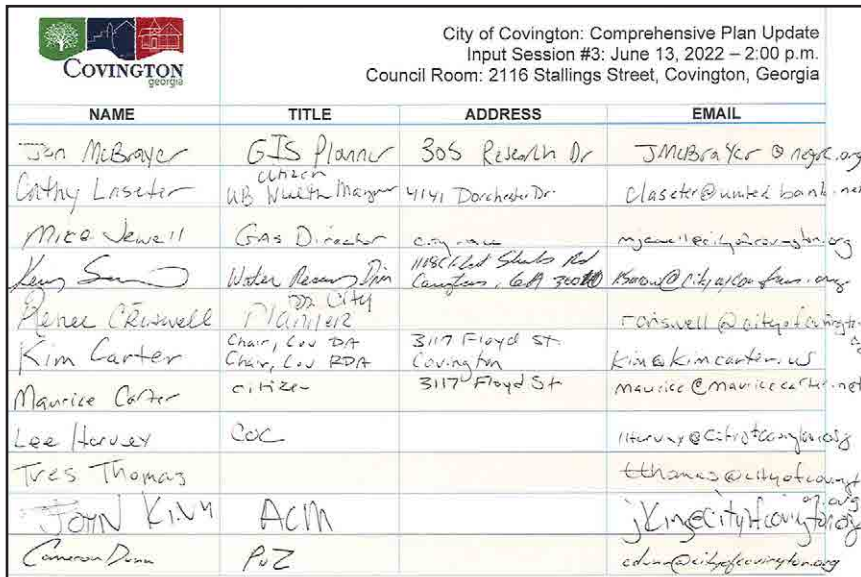 COVINGTON
georgia
City of Covington: Comprehensive Plan Update
Input Session #3: June 13, 2022 – 2:00 p.m.
Council Room: 2116 Stallings Street, Covington, Georgia
NAME TITLE ADDRESS EMAIL
Jon McBrayer GIS Planner 305 Research Dr JMcBrayer@negrc.org
Cathy Laseter citizen UB Wealth 4141 Dorchester Dr. claseter@unitedbank.net
Mike Jewell GAs Director mjewell@cityofcovington.org
Water GA
Renee Criswell City Planner rcriswell@cityofcovington.
Kim Carter Chair, Cov DA 3117 Floyd St. kim@kimcarter.us
Chair, Cov RDA Covington
Maurice Carter citizen 3117 Floyd St maurice@mauricecarter.net
Lee Harvey COC lharvey@cityofcovington.org
Tres Thomas tthomas@cityofcovington.org
JOHN King ACM jking@cityofcovington.org
Cameron Dunn PnZ cdunn@cityofcovington.org